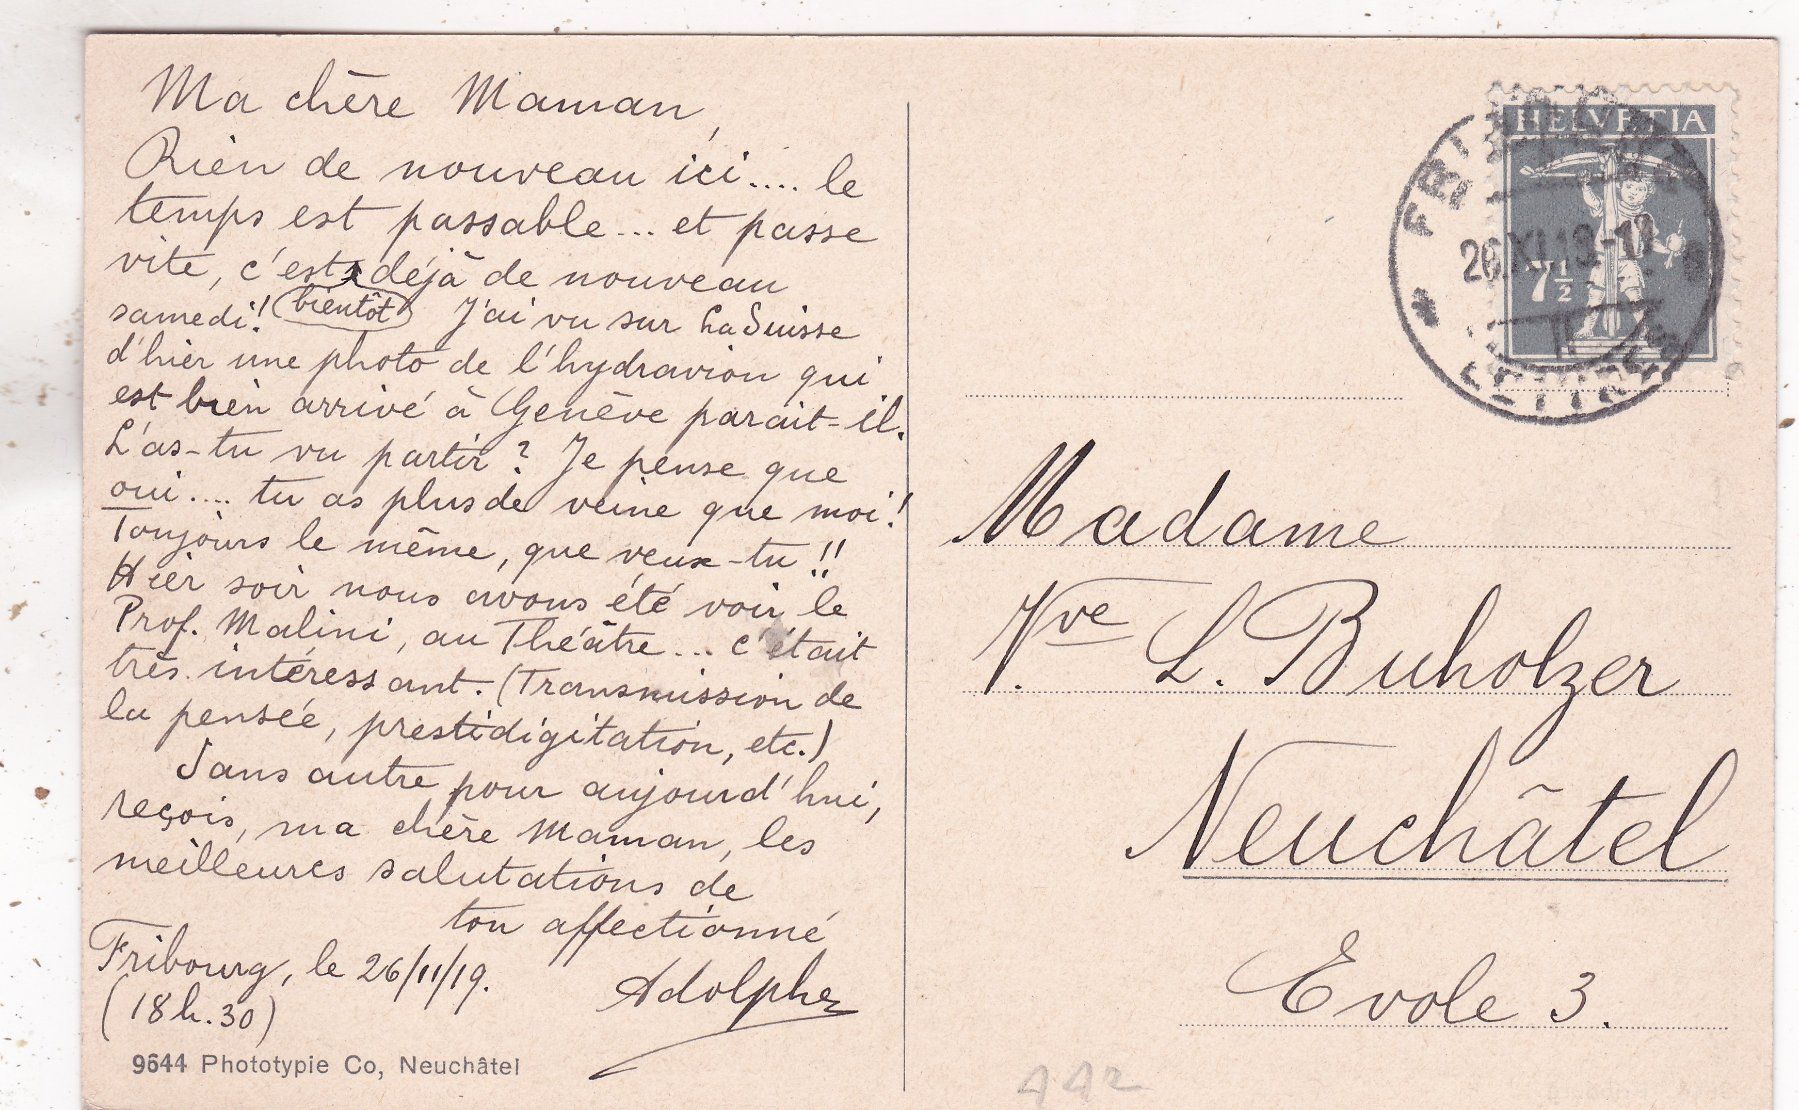 Ma chère Maman,
Rien de nouveau ici.... le
temps est passable... et passe
vite, c'est déjà de nouveau
bientôt
samedi! J'ai vu sur La Suisse
d'hier une photo de l'hydravion qui
est bien arrivé à Genève parait-il.
L'as-tu vu partir? Je pense que
oui.... tu as plus de veine que moi!
Toujours le même, que veux-tu!!
Hier soir nous avons été voir le
Prof. Malini, au Théâtre... c'était
très intéressant. (Transmission de
la pensée, prestidigitation, etc.)
Sans autre pour aujourd'hui,
reçois, ma chère Maman, les
meilleures salutations de
ton affectionné
Adolphe
Fribourg, le 26/11/19.
(18 h. 30)
9644 Phototypie Co, Neuchâtel
HELVETIA
7½
26.XI.19.-1
Madame
Vve L. Buholzer
Neuchâtel
Evole 3.
442